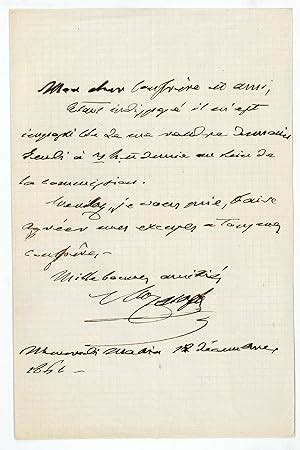 Mon cher Confrère et ami,
Etant indisposé il m'est
impossible de me rendre demain
Jeudi à 7 h. et demie au sein de
la commission.
Veuillez, je vous prie, faire
agréer mes excuses à tous nos
confrères.
Mille bonnes amitiés
Mercredi matin 12 décembre